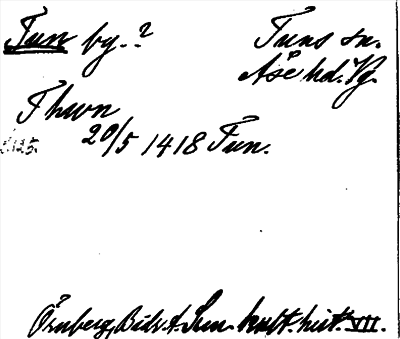 Tun by.?
Tuns sn.
Åse hd. Vg.
Thwn
s. 125.
20/5 1418 Tun.
Örnberg, Bidr. t. Sven. kult. hist. VII.